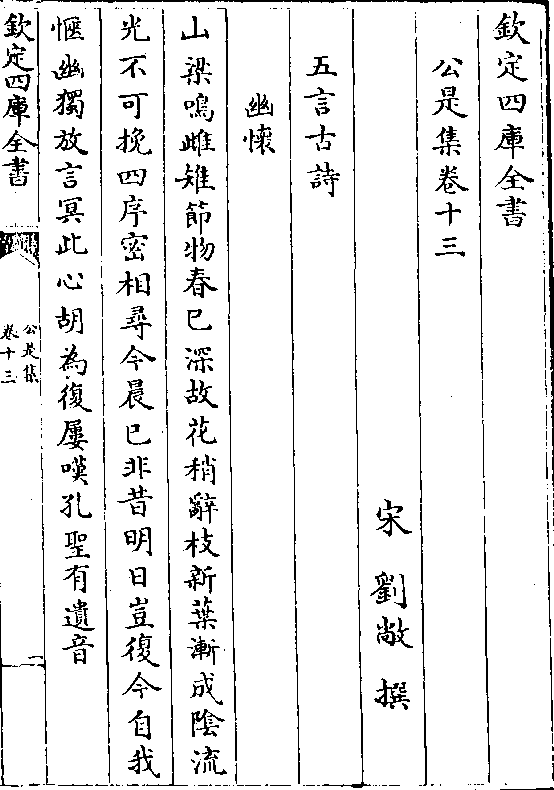 欽定四庫全書
公是集卷十三
宋 劉敞 撰
五言古詩
幽懷
山梁鳴雌雉節物春已深故花稍辭枝新葉漸成陰流
光不可挽四序密相尋今晨已非昔明日豈復今自我
愜幽獨放言冥此心胡為復屢嘆孔聖有遺音
欽定四庫全書
公是集
卷十三
一